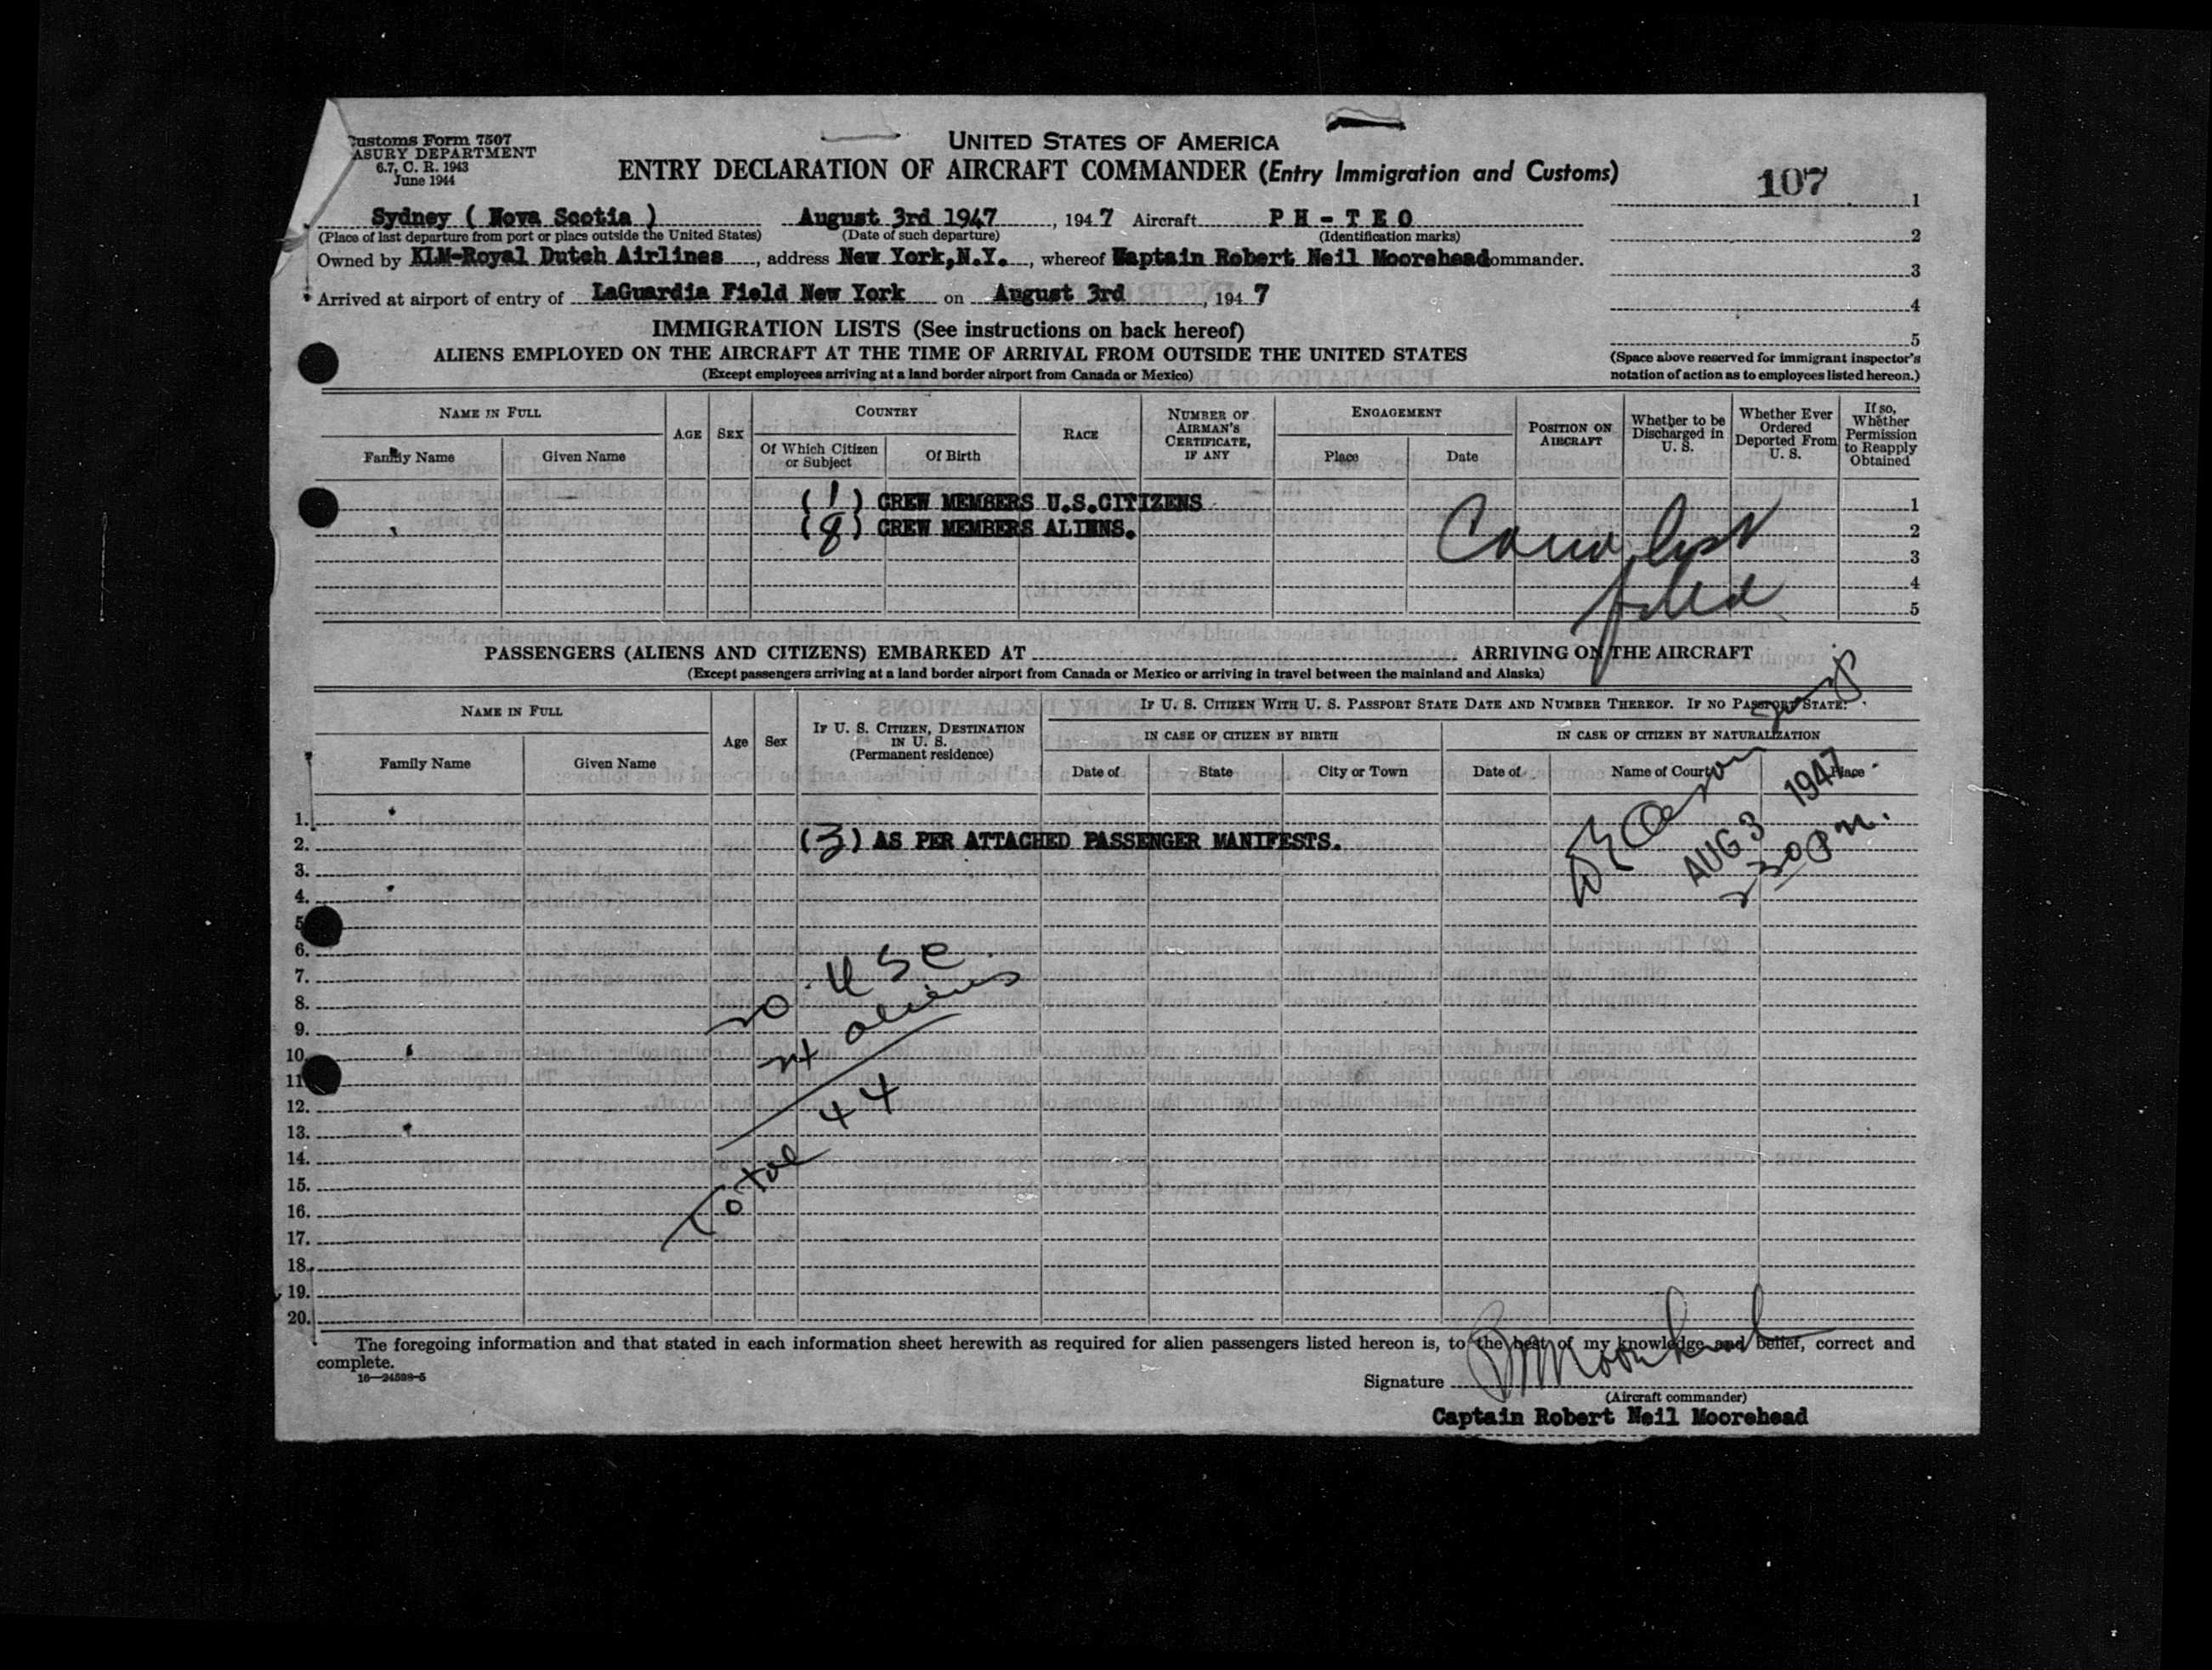 Customs Form 7507
ASURY DEPARTMENT
6.7, C. R. 1943
June 1944
UNITED STATES OF AMERICA
ENTRY DECLARATION OF AIRCRAFT COMMANDER (Entry Immigration and Customs)
107
Sydney ( Nova Scotia ) August 3rd 1947, 194 7 Aircraft P H - T E O
(Place of last departure from port or place outside the United States) (Date of such departure) (Identification marks)
Owned by KLM-Royal Dutch Airlines, address New York, N.Y., whereof Captain Robert Neil Moorehead ommander.
Arrived at airport of entry of LaGuardia Field New York on August 3rd, 194 7
1
2
3
4
5
(Space above reserved for immigrant inspector's
notation of action as to employees listed hereon.)
IMMIGRATION LISTS (See instructions on back hereof)
ALIENS EMPLOYED ON THE AIRCRAFT AT THE TIME OF ARRIVAL FROM OUTSIDE THE UNITED STATES
(Except employees arriving at a land border airport from Canada or Mexico)
NAME IN FULL
Family Name Given Name
AGE SEX
COUNTRY
Of Which Citizen or Subject Of Birth
RACE
NUMBER OF AIRMAN'S CERTIFICATE, IF ANY
ENGAGEMENT
Place Date
POSITION ON AIRCRAFT
Whether to be Discharged in U. S.
Whether Ever Ordered Deported From U. S.
If so, Whether Permission to Reapply Obtained
( 1 ) CREW MEMBERS U.S.CITIZENS 1
( 8 ) CREW MEMBERS ALIENS. 2
3
4
5
list
filed
PASSENGERS (ALIENS AND CITIZENS) EMBARKED AT ARRIVING ON THE AIRCRAFT
(Except passengers arriving at a land border airport from Canada or Mexico or arriving in travel between the mainland and Alaska)
NAME IN FULL
Family Name Given Name
Age Sex
IF U. S. CITIZEN, DESTINATION IN U. S.
(Permanent residence)
IF U. S. CITIZEN WITH U. S. PASSPORT STATE DATE AND NUMBER THEREOF. IF NO PASSPORT STATE:
IN CASE OF CITIZEN BY BIRTH IN CASE OF CITIZEN BY NATURALIZATION
Date of State City or Town Date of Name of Court Place
AUG 3 1947
230 PM.
1.
2. (3) AS PER ATTACHED PASSENGER MANIFESTS.
3.
4.
5.
6.
7.
8.
9.
10.
11.
12.
13.
14.
15.
16.
17.
18.
19.
20.
20 USC
24 aliens
Total 44
The foregoing information and that stated in each information sheet herewith as required for alien passengers listed hereon is, to the best of my knowledge and belief, correct and
complete.
16—24598-5
Signature RNMoorehead
(Aircraft commander)
Captain Robert Neil Moorehead